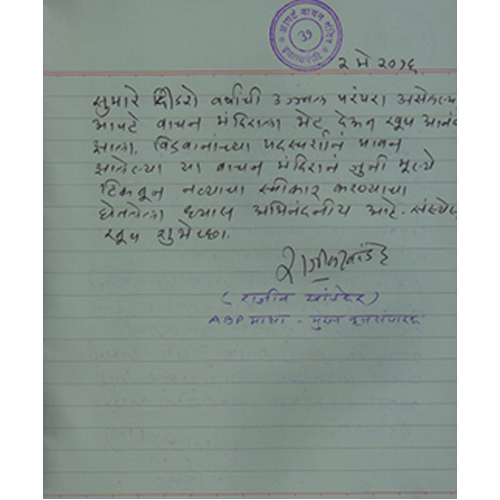 आपटे वाचन मंदिर
इचलकरंजी
३७
२ मे २०१६
सुमारे दीडशे वर्षाची उज्वल परंपरा असलेल्या
आपटे वाचन मंदिराला भेट देऊन खूप आनंद
झाला. विद्वानांच्या पदस्पर्शानं पावन
झालेल्या या वाचन मंदिरानं जुनी मूल्ये
टिकवून नव्याचा स्वीकार करण्याचा
घेतलेला ध्यास अभिनंदनीय आहे. संस्थेला
खूप शुभेच्छा.
राजीव खांडेकर
(राजीव खांडेकर)
ABP माझा - मुख्य संपादक